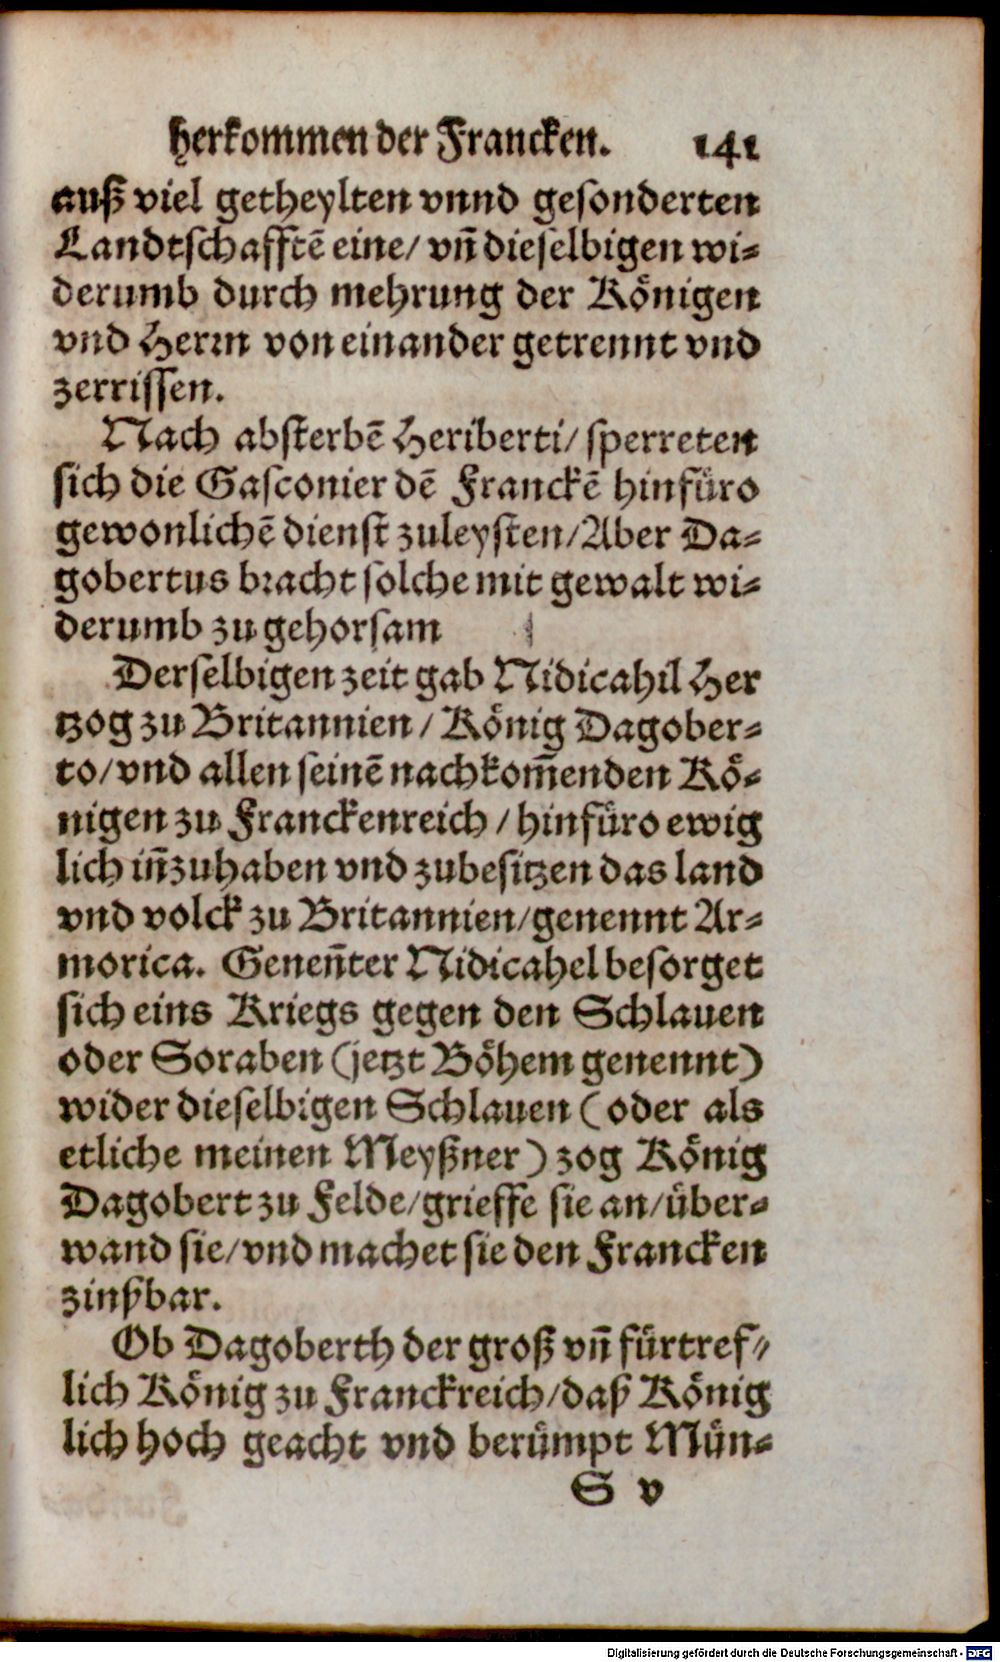 herkommen der Francken. 141
auß viel getheylten vnnd gesonderten
Landtschafftẽ eine/ vñ dieselbigen wi-
derumb durch mehrung der Königen
vnd Herrn von einander getrennt vnd
zerrissen.
Nach absterbẽ Heriberti/ sperreten
sich die Gasconier dẽ Franckẽ hinfüro
gewonlichẽ dienst zuleysten/ Aber Da-
gobertus bracht solche mit gewalt wi-
derumb zu gehorsam
Derselbigen zeit gab Nidicahil Her
tzog zu Britannien / König Dagober-
to/ vnd allen seinẽ nachkom̃enden Kö-
nigen zu Franckenreich / hinfüro ewig
lich iñzuhaben vnd zubesitzen das land
vnd volck zu Britannien/ genennt Ar-
morica. Geneñter Nidicahel besorget
sich eins Kriegs gegen den Schlauen
oder Soraben (jetzt Böhem genennt)
wider dieselbigen Schlauen (oder als
etliche meinen Meyßner) zog König
Dagobert zu Felde/ grieffe sie an/ über-
wand sie/ vnd machet sie den Francken
zinßbar.
Ob Dagoberth der groß vñ fürtref-
lich König zu Franckreich/ daß König
lich hoch geacht vnd berümpt Mün-
S v
Digitalisierung gefördert durch die Deutsche Forschungsgemeinschaft - DFG